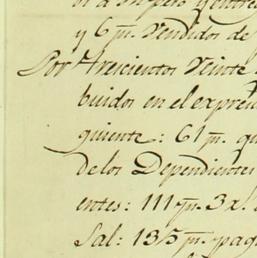 y 6 p.^s Vendidos de
Por trescientos Veinte
buidos en el expren
guiente: 61 p.^s qu
de los Dependientes
entes: 111 p.^s 3 r.^s
Sal: 135 p.^s pag